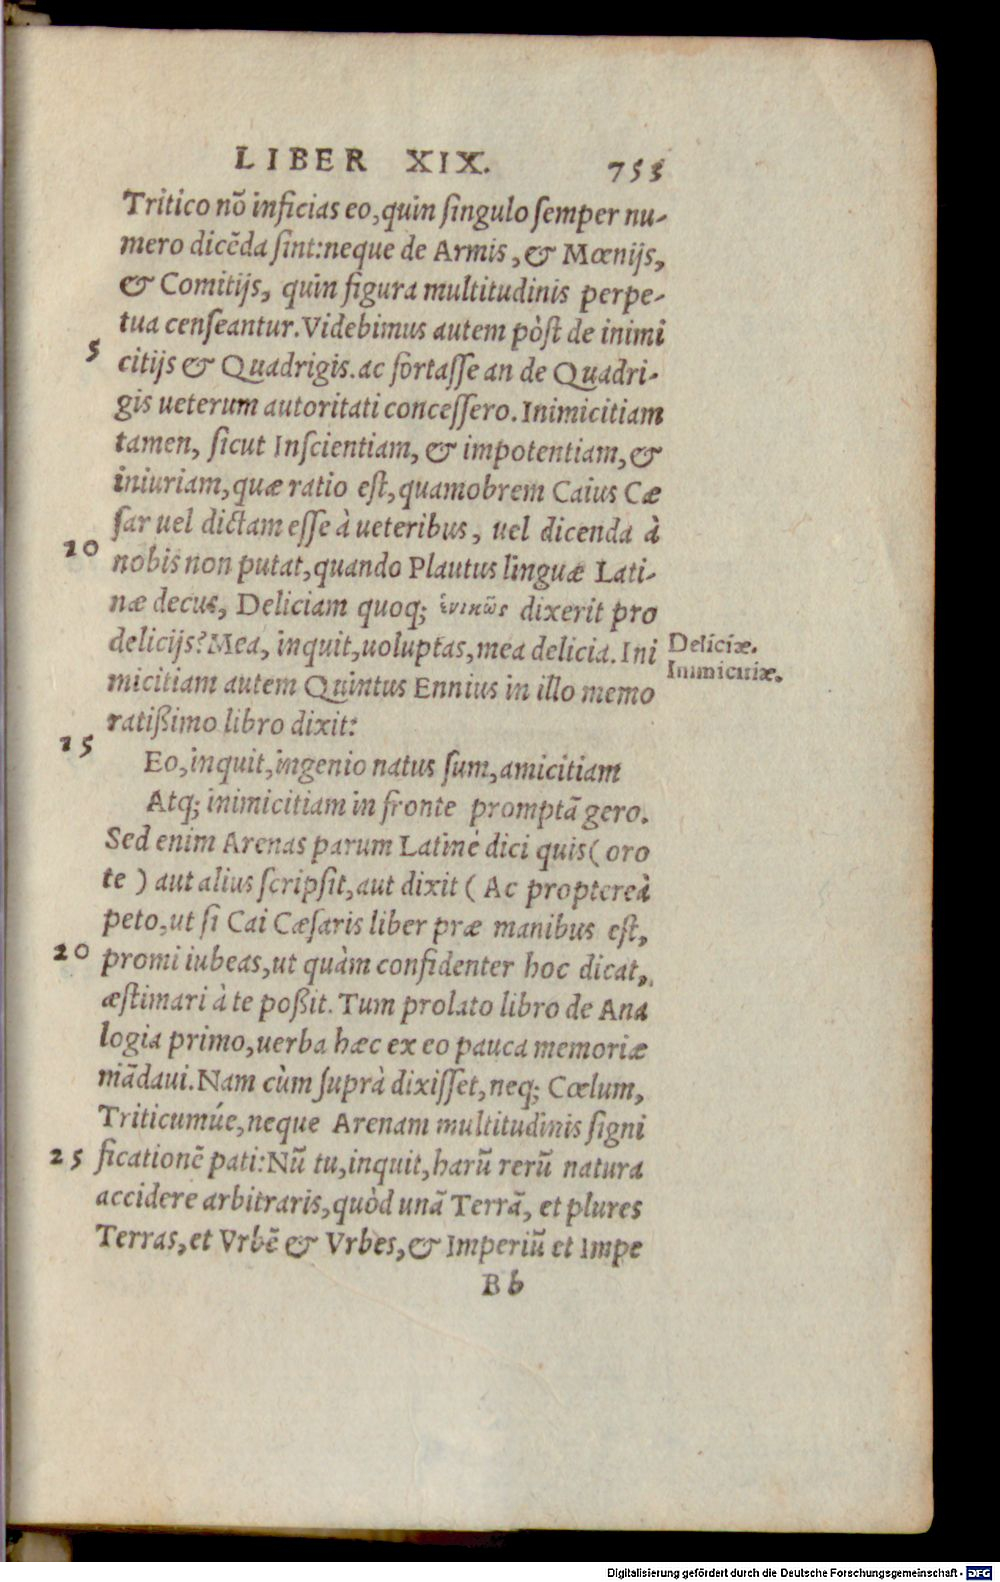 LIBER XIX. 753
Tritico nō inficias eo, quin ſingulo ſemper nu-
mero dicēda ſint: neque de Armis, & Mœnijs,
& Comitijs, quin figura multitudinis perpe-
tua cenſeantur. Videbimus autem pòſt de inimi
5 citijs & Quadrigis. ac fortaſſe an de Quadri-
gis ueterum autoritati conceſſero. Inimicitiam
tamen, ſicut Inſcientiam, & impotentiam, &
iniuriam, quæ ratio eſt, quamobrem Caius Cæ
ſar uel dictam eſſe à ueteribus, uel dicenda à
10 nobis non putat, quando Plautus linguæ Lati-
næ decus, Deliciam quoq; ἑνικῶς dixerit pro
delicijs? Mea, inquit, uoluptas, mea delicia. Ini
Deliciæ.
Inimicitiæ.
micitiam autem Quintus Ennius in illo memo
ratißimo libro dixit:
15 Eo, inquit, ingenio natus ſum, amicitiam
Atq; inimicitiam in fronte promptā gero.
Sed enim Arenas parum Latinè dici quis (oro
te ) aut alius ſcripſit, aut dixit ( Ac proptereà
peto, ut ſi Cai Cæſaris liber præ manibus eſt,
20 promi iubeas, ut quàm confidenter hoc dicat,
æſtimari à te poßit. Tum prolato libro de Ana
logia primo, uerba hæc ex eo pauca memoriæ
mādaui. Nam cùm ſuprà dixiſſet, neq; Cœlum,
Triticumúe, neque Arenam multitudinis ſigni
25 ficationē pati: Nū tu, inquit, harū rerū natura
accidere arbitraris, quòd unā Terrā, et plures
Terras, et Vrbē & Vrbes, & Imperiū et Impe
B b
Digitalisierung gefördert durch die Deutsche Forschungsgemeinschaft - DFG